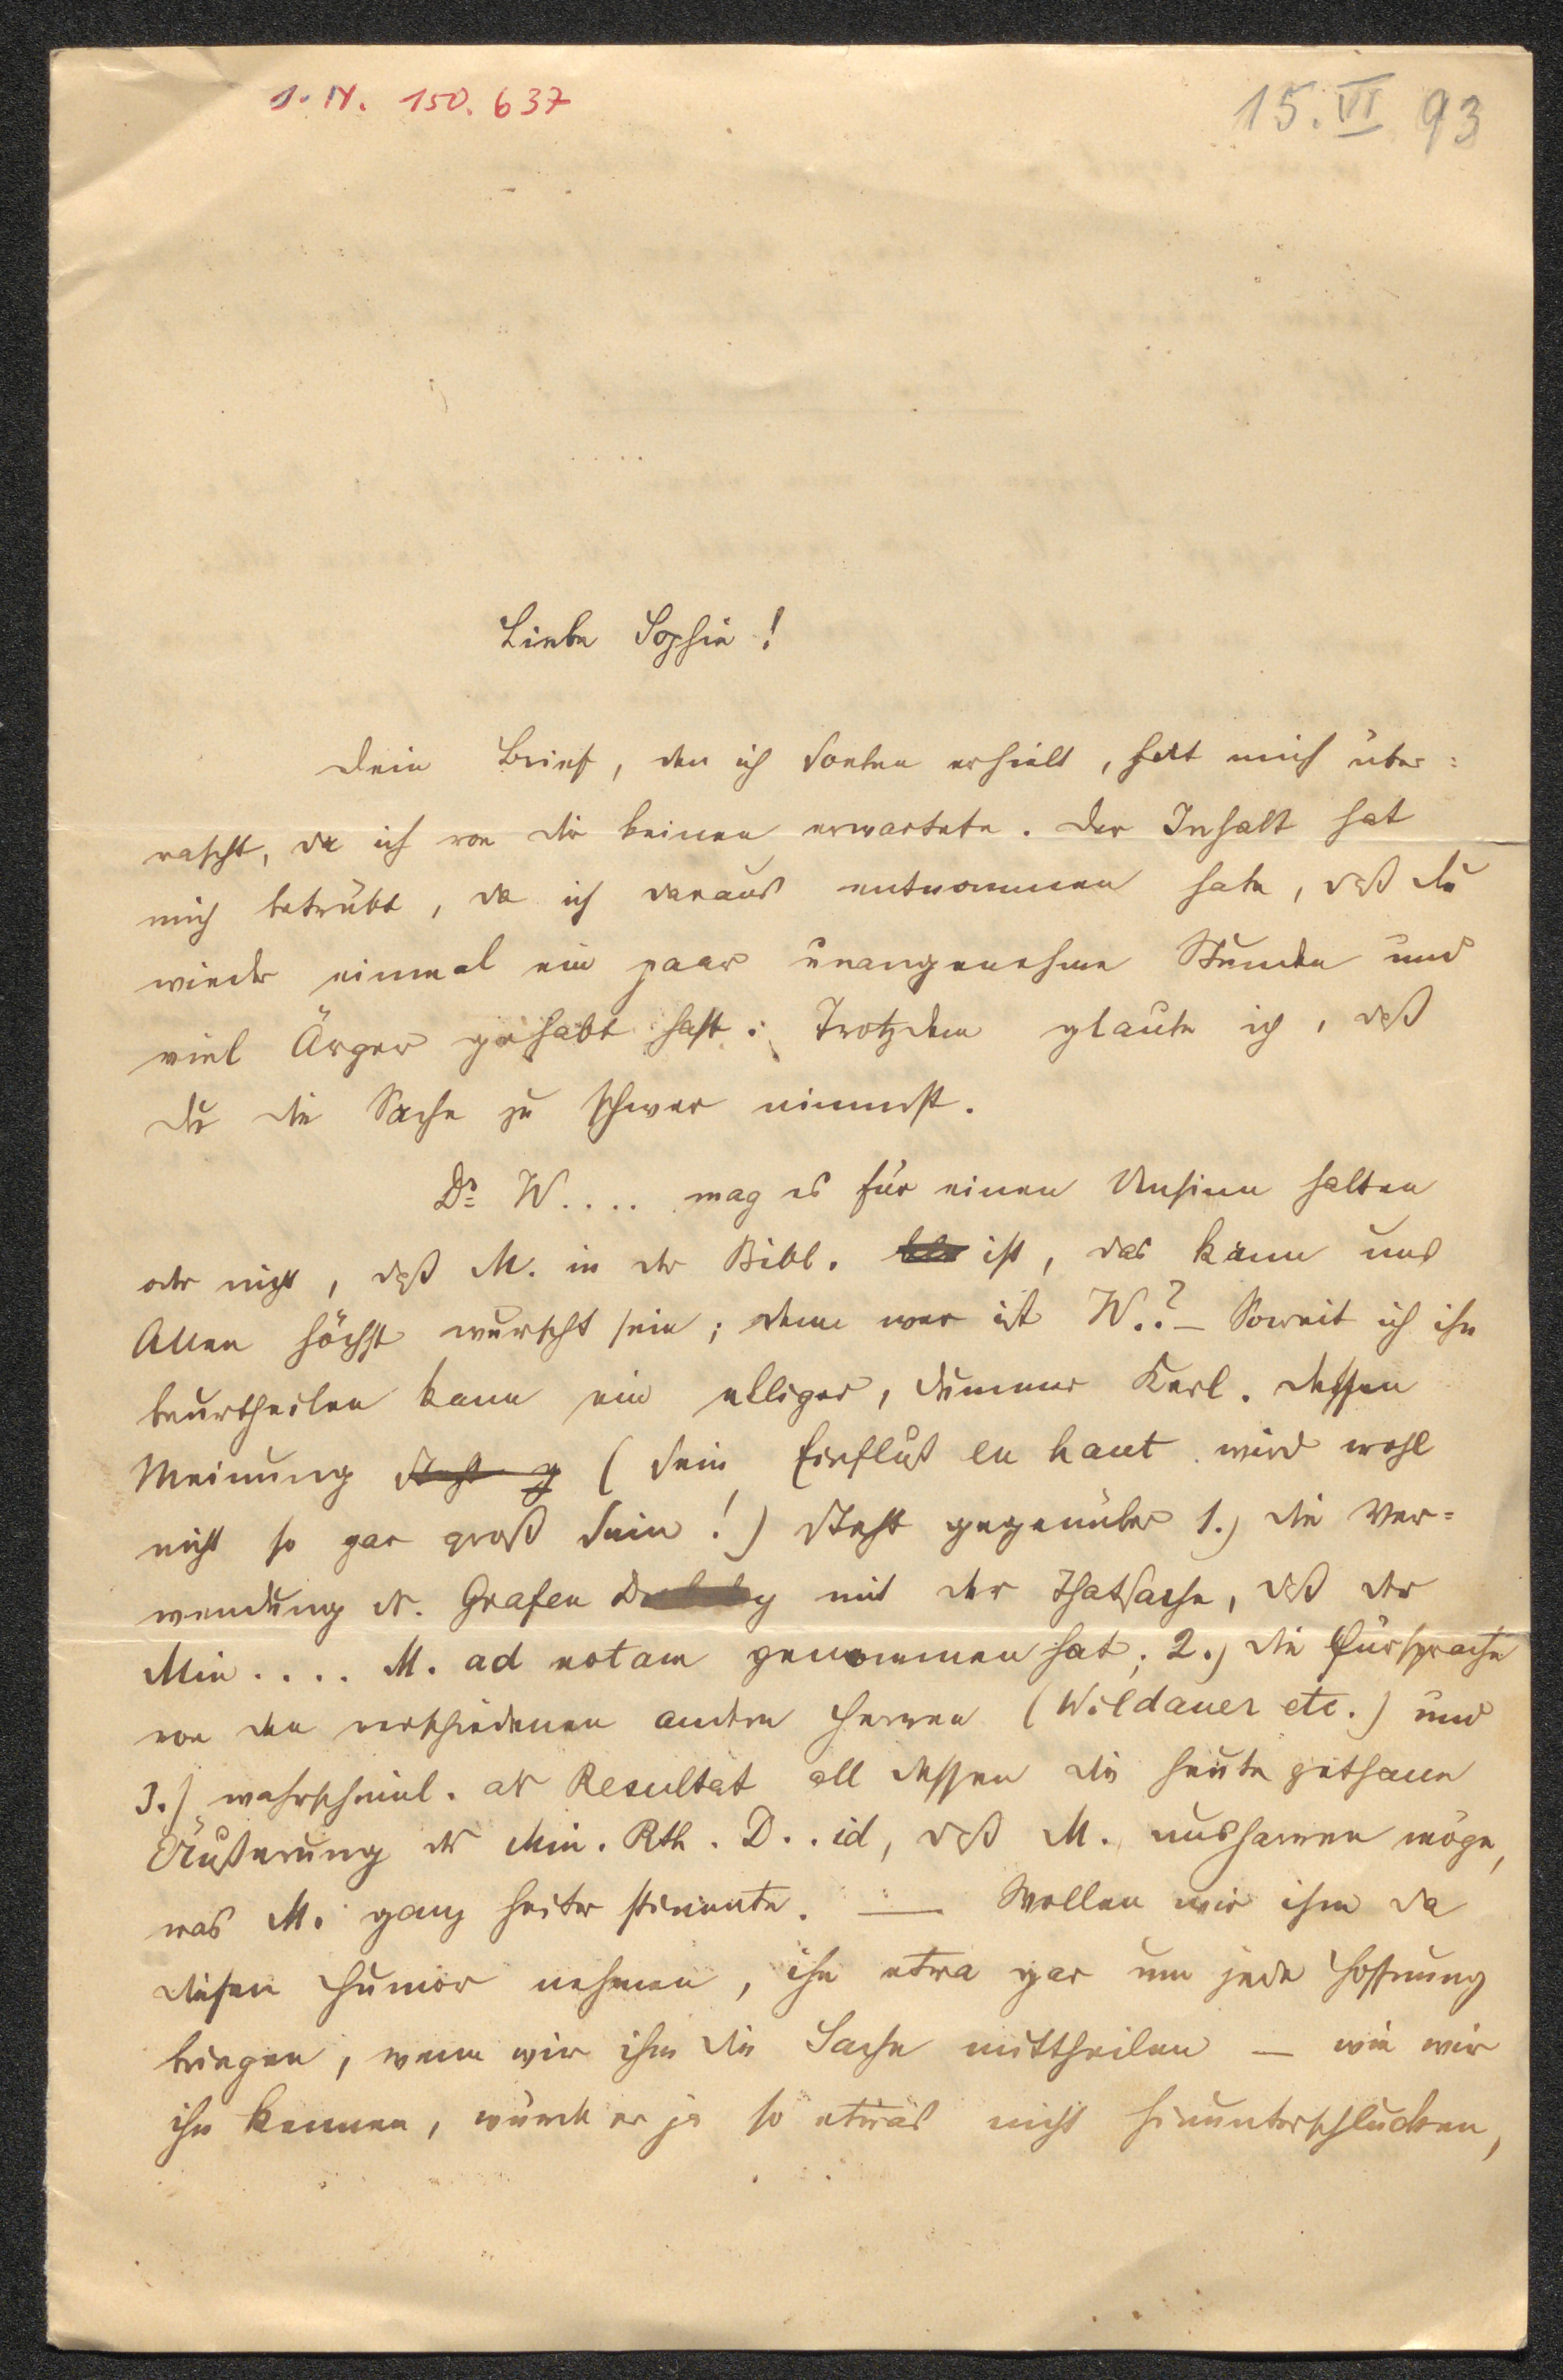 I. N. 150.637
15. VI 93
Liebe Sophie!
Dein Brief, den ich soeben erhielt, hat mich über=
rascht, da ich von dir keinen erwartete. Der Inhalt hat
mich betrübt, da ich daraus entnommen habe, daß du
wieder einmal ein paar unangenehme Stunden und
viel Ärger gehabt hast. Trotzdem glaube ich, daß
du die Sache zu schwer nimmst.
Dr W.... mag es für einen Unsinn halten
oder nicht, daß M. in der Bibl. ist, das kann uns
Allen höchst wurscht sein; denn wer ist W..? – Soweit ich ihn
beurtheilen kann ein elliger, dummer Kerl. Dessen
Meinung steht g (sein Einfluß en haut wird wohl
nicht so gar groß sein!) steht gegenüber 1.) die Ver=
wendung des Grafen mit der Thatsache, daß der
Min.... M. ad notam genommen hat; 2.) die Fürsprache
von den verschiedenen andern Herren (Wildauer etc.) und
3.) wahrscheinl. als Resultat all dessen die heute gethane
Äußerung des Min. Rth. D..id, daß M. ausharren möge,
was M. ganz heiter stimmte. — Wollen wir ihm da
diesen Humor nehmen, ihn etwa gar um jede Hoffnung
bringen, wenn wir ihm die Sache mittheilen — wie wir
ihn kennen, würde er ja so etwas nicht hinunterschlucken,